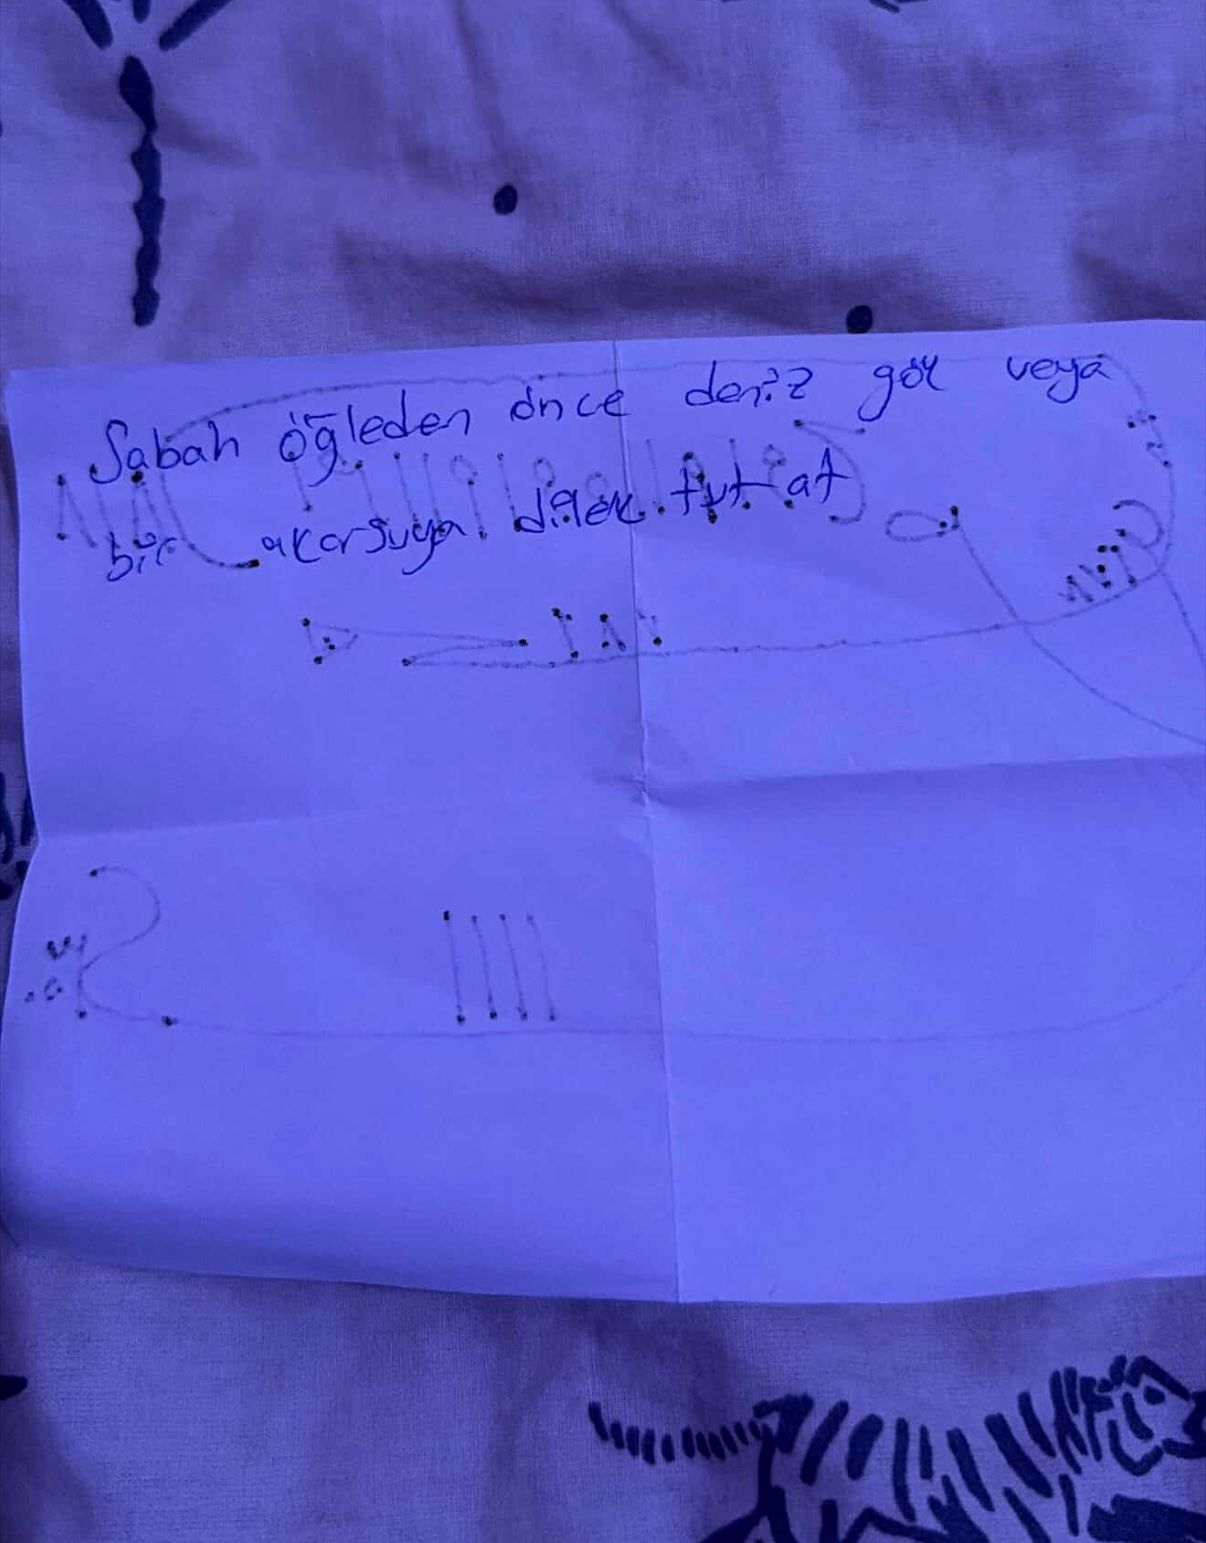 Sabah öğleden önce deniz göl veya
bir akarsuya dilek tut at